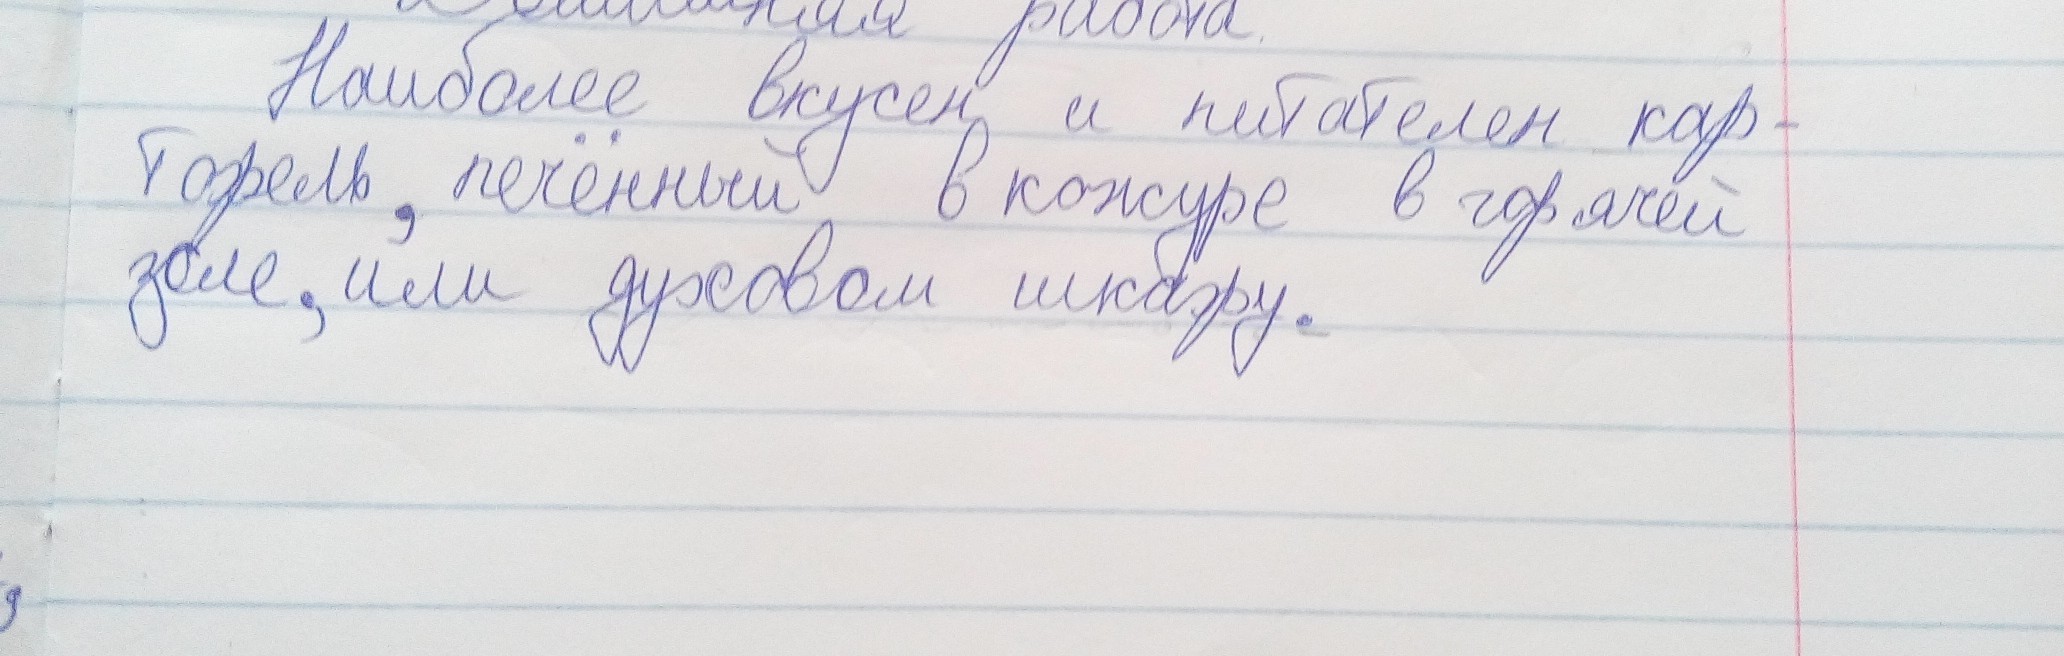 Домашняя работа.
Наиболее вкусен и питателен кар-
тофель, печённый в кожуре в горячей
золе, или духовом шкафу.